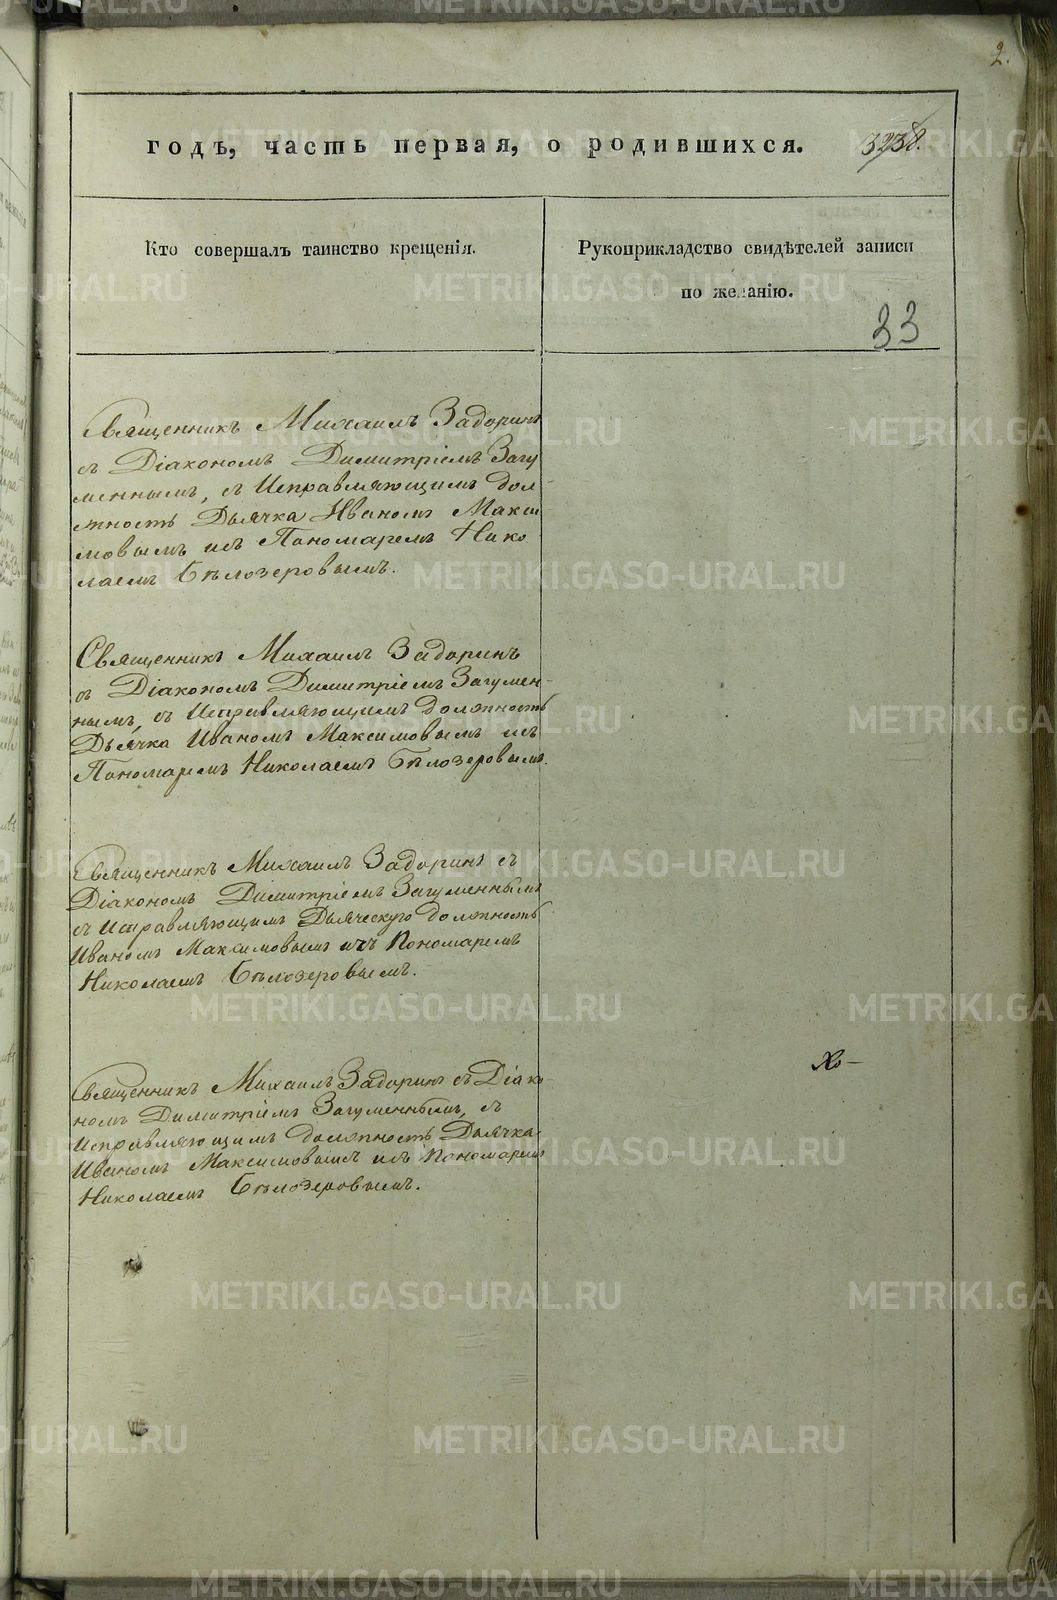 2.
годъ, часть первая, о родившихся.
3238.
Кто совершалъ таинство крещенія.
Рукоприкладство свидѣтелей записи
по желанію.
33
Священникъ Михаилъ Задоринъ
съ Діакономъ Димитріемъ Загу
меннымъ, съ Исправляющимъ дол-
жность Дьячка Иваномъ Макси
мовымъ исъ Пономаремъ Нико
лаемъ Бѣлозеровымъ.
Священникъ Михаилъ Задоринъ
съ Діакономъ Димитріемъ Загумен-
нымъ, съ Исправляющимъ должность
Дьячка Иваномъ Максимовымъ исъ
Пономаремъ Николаемъ Бѣлозеровымъ.
Священникъ Михаилъ Задоринъ съ
Діакономъ Димитріемъ Загуменнымъ
съ Исправляющимъ Дьяческую должность
Иваномъ Максимовымъ исъ Пономаремъ
Николаемъ Бѣлозеровымъ.
Священникъ Михаилъ Задоринъ съ Діако-
номъ Димитріемъ Загуменнымъ, съ
Исправляющимъ должность Дьячка
Иваномъ Максимовымъ исъ Пономаремъ
Николаемъ Бѣлозеровымъ.
METRIKI.GASO-URAL.RU